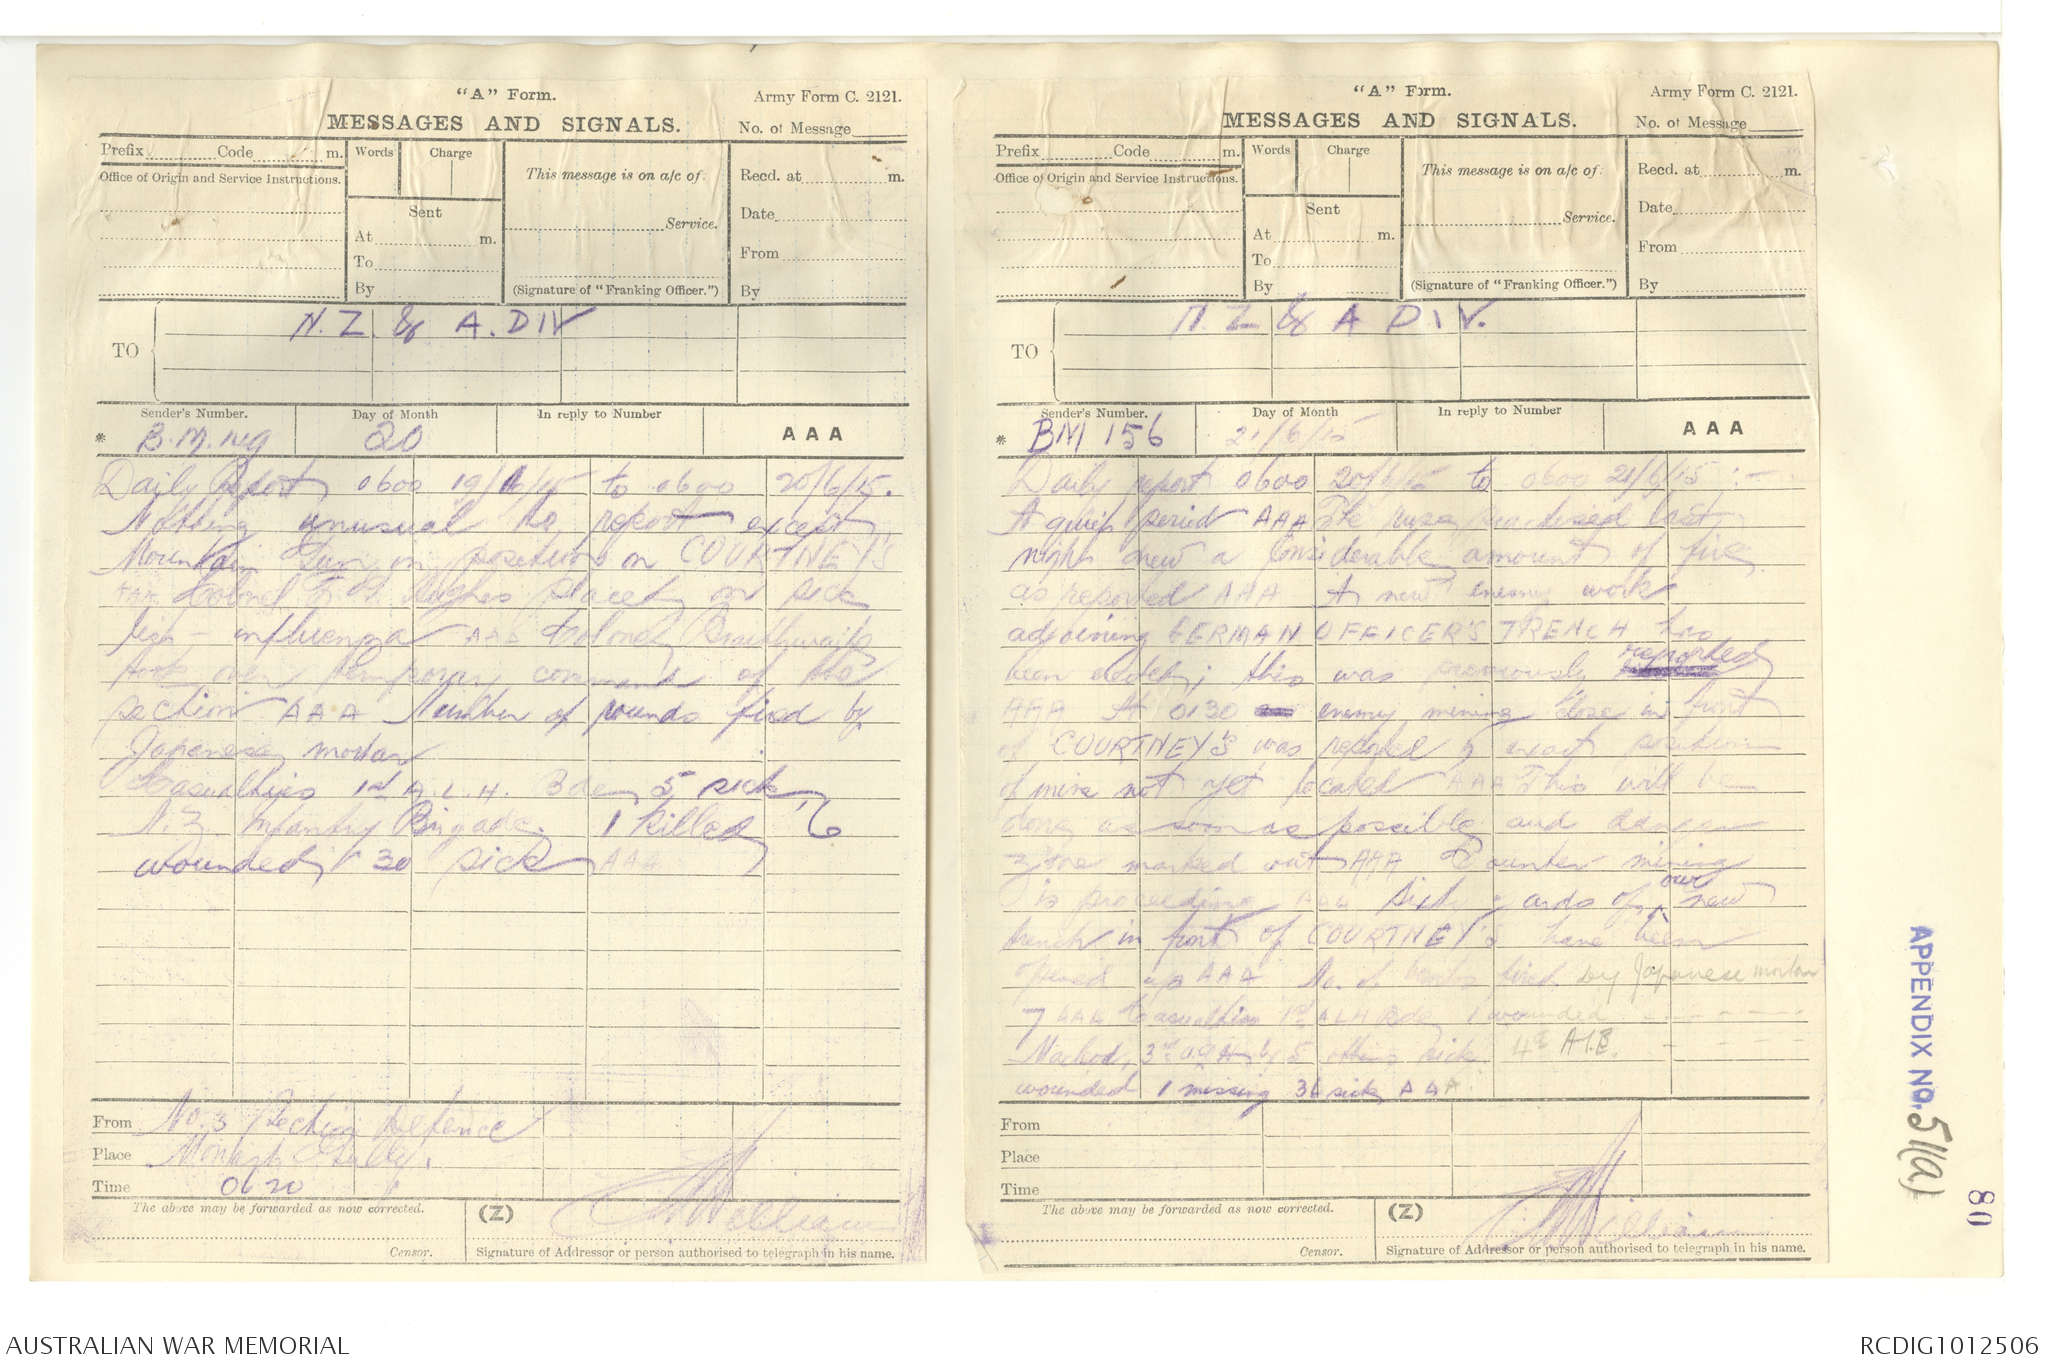 "A" Form.
Army Form C. 2121.
MESSAGES AND SIGNALS.
No. of Message
Prefix Code m.
Words Charge
This message is on a/c of:
Recd. at m.
Office of Origin and Service Instructions.
Sent
Date
Service.
At m.
From
To
By
(Signature of "Franking Officer.")
By
TO
N.Z. & A. DIV
Sender's Number.
Day of Month
In reply to Number
AAA
* B.M. 149
20
Daily Report 0600 19/6/15 to 0600 20/6/15.
Nothing unusual to report except
Mountain Gun in position on COURTNEY'S
AAA Colonel F. G. Hughes placed on sick
list - influenza AAA Colonel Braithwaite
took over temporary command of the
section AAA Number of rounds fired by
Japanese mortar
Casualties 1st A.L.H. Bde 5 sick,
N.Z. Infantry Brigade. 1 killed, 6
wounded, 30 sick AAA
From No. 3 Section Defence
Place Monash Gully.
Time 0620
The above may be forwarded as now corrected.
(Z)
Williams
Censor.
Signature of Addressor or person authorised to telegraph in his name.
"A" Form.
Army Form C. 2121.
MESSAGES AND SIGNALS.
No. of Message
Prefix Code m.
Words Charge
This message is on a/c of:
Recd. at m.
Office of Origin and Service Instructions.
Sent
Date
Service.
At m.
From
To
By
(Signature of "Franking Officer.")
By
TO
N.Z & A DIV.
Sender's Number.
Day of Month
In reply to Number
AAA
* BM 156
21/6/15
Daily report 0600 20/6/15 to 0600 21/6/15 :-
A quiet period AAA The ruse practised last
night drew a considerable amount of fire
as reported AAA A new enemy work
adjoining GERMAN OFFICER'S TRENCH has
been ; this was previously reported
AAA At 0130 enemy mining close in front
of COURTNEY'S was reported exact position
of mine not yet located AAA This will be
done as soon as possible and danger
zone marked out AAA Counter-mining
is proceeding AAA Sixty yards of our new
trench in front of COURTNEY'S have been
opened up AAA No. of bombs fired by Japanese mortar
7 AAA Casualties 1st ALH Bde 1 wounded
5 others sick 4th A.I.B.
wounded 1 missing 36 sick AAA
From
Place
Time
The above may be forwarded as now corrected.
(Z)
Williams
Censor.
Signature of Addressor or person authorised to telegraph in his name.
APPENDIX NO. 51(a)
80
AUSTRALIAN WAR MEMORIAL
RCDIG1012506